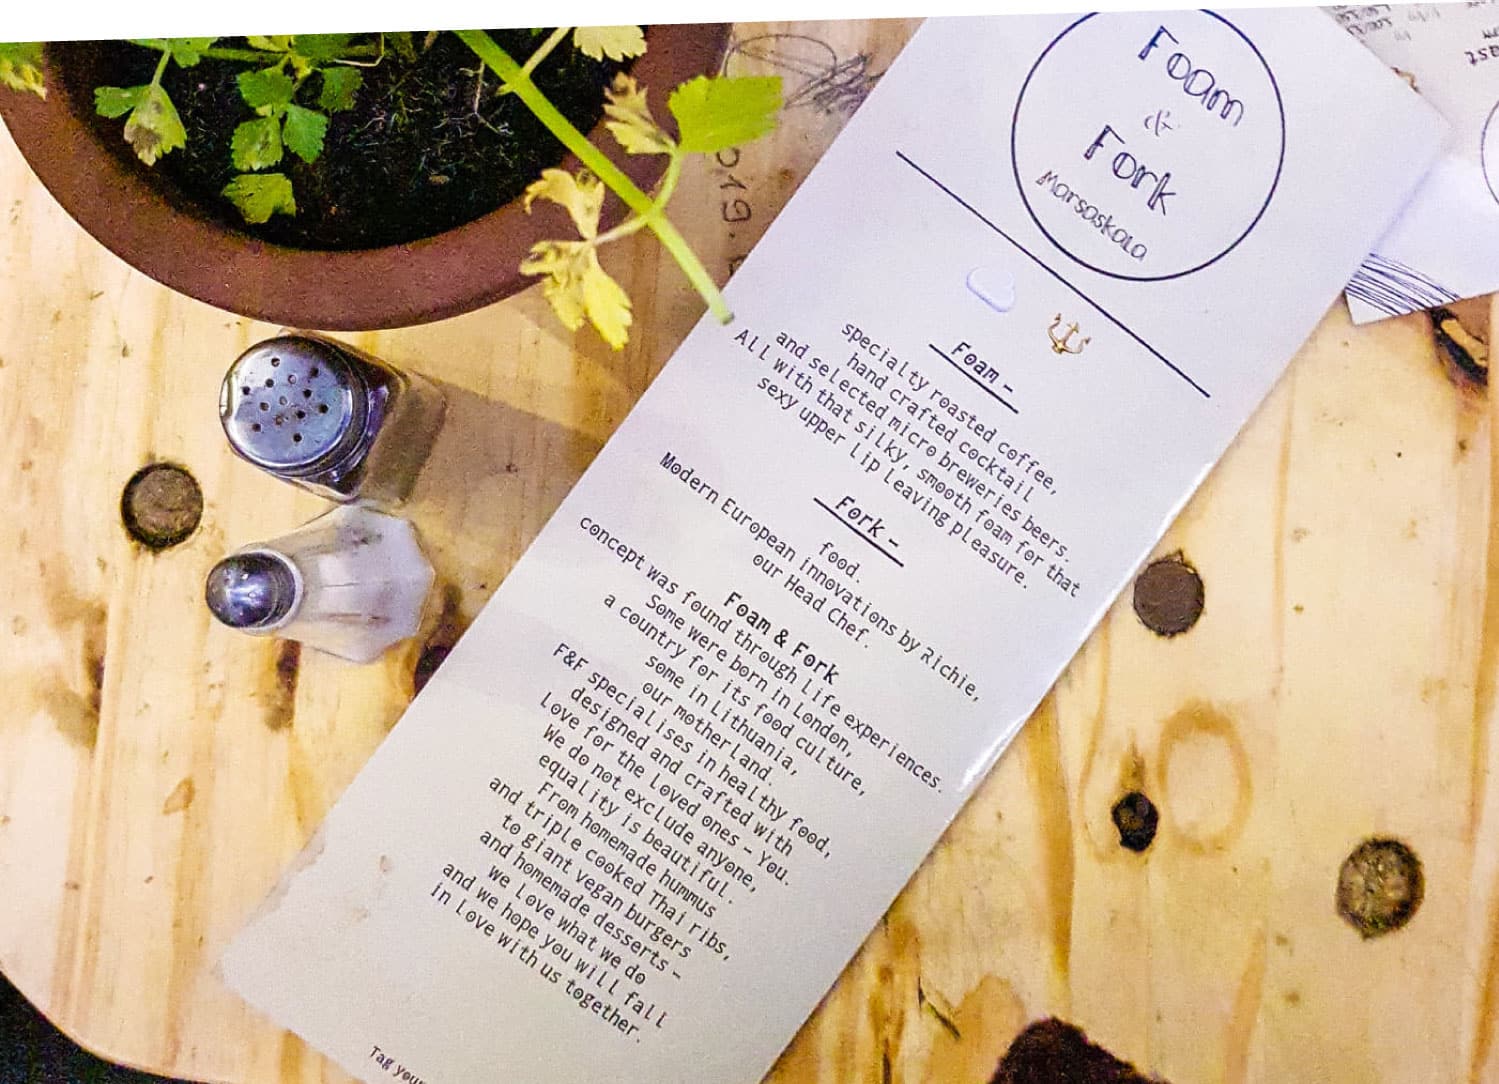 Foam
&
Fork
Marsaskala
Foam -
specialty roasted coffee,
hand crafted cocktail
and selected micro breweries beers.
All with that silky, smooth foam for that
sexy upper lip leaving pleasure.
Fork -
food.
Modern European innovations by Richie,
our Head Chef.
Foam & Fork
concept was found through life experiences.
Some were born in London,
a country for its food culture,
some in Lithuania,
our motherland.
F&F specialises in healthy food,
designed and crafted with
love for the loved ones - You.
We do not exclude anyone,
equality is beautiful.
From homemade hummus
and triple cooked Thai ribs,
to giant vegan burgers
and homemade desserts -
we love what we do
and we hope you will fall
in love with us together.
Tag your